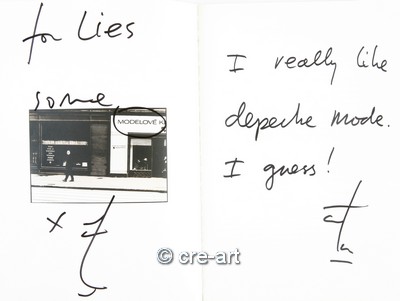 for Lies
some
MODELOVÉ K
x
I really like
depeche mode.
I guess!
© cre-art